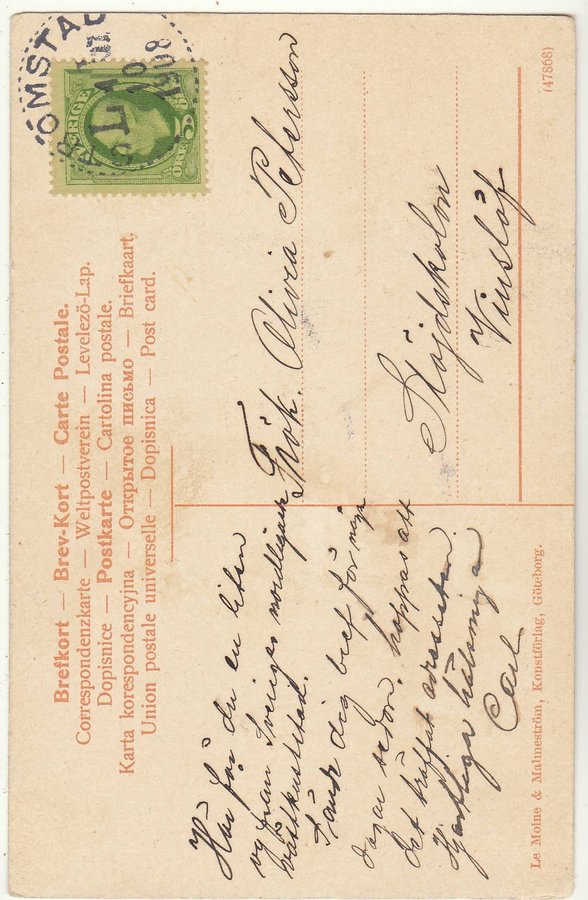 Brefkort — Brev-Kort — Carte Postale.
Correspondenzkarte — Weltpostverein — Levelező-Lap.
Dopisnice — Postkarte — Cartolina postale.
Karta korespondencyjna — Открытое письмо — Briefkaart.
Union postale universelle — Dopisnica — Post card.
Här får du en liten
vy från Sveriges nordligaste
västkuststad.
Sände dig bref för några
dagar sedan, hoppas att
det träffat adressaten.
Hjärtliga hälsningar
Carl
STRÖMSTAD
1908
SVERIGE
5
ÖRE
Frök. Olivia Petersson
Slöjdskolan
Vinslöf
Le Moine & Malmeström, Konstförlag, Göteborg.
(47868)